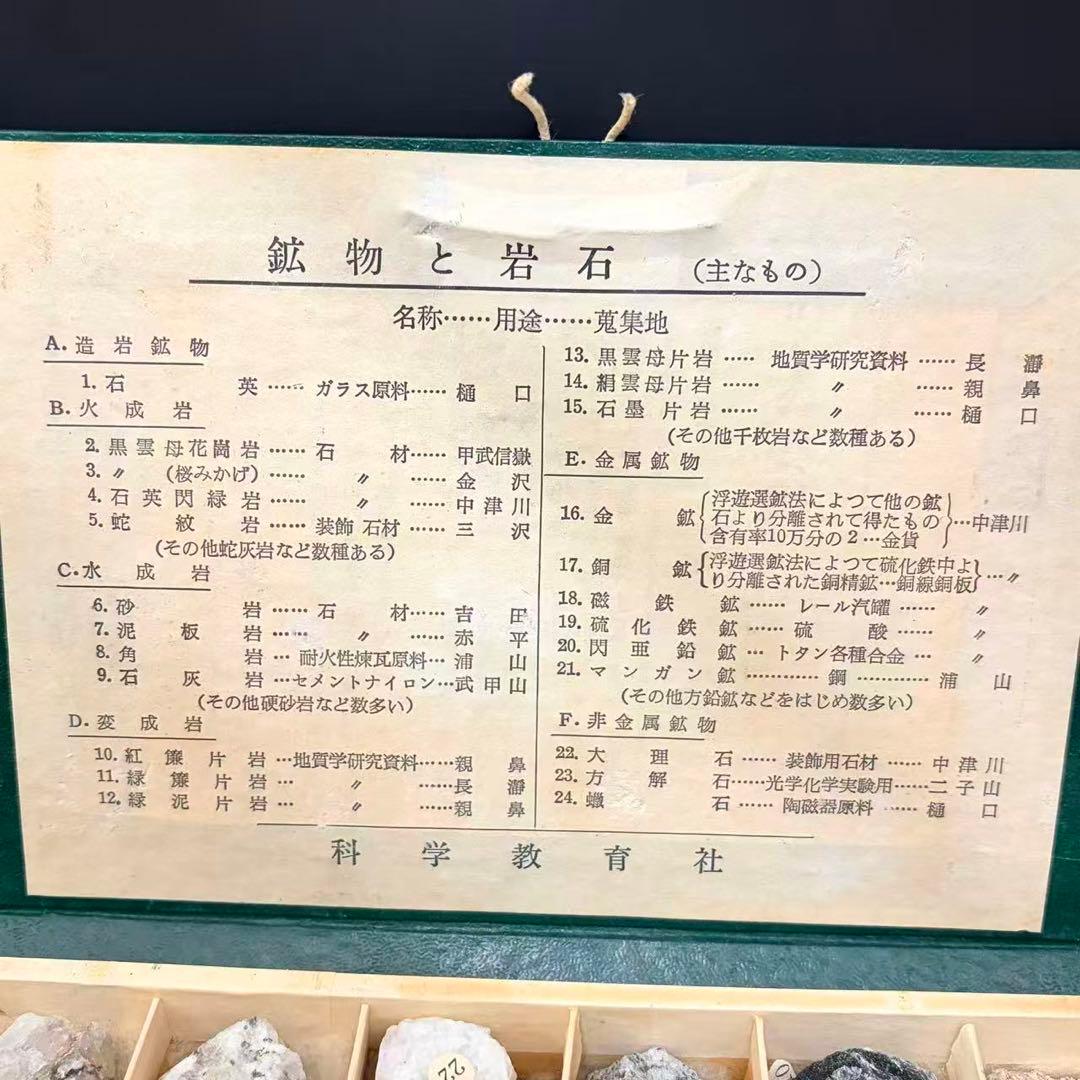 鉱物と岩石 (主なもの)
名称……用途……蒐集地
A. 造岩鉱物
1. 石英……ガラス原料……樋口
B. 火成岩
2. 黒雲母花崗岩……石材……甲武信嶽
3. 〃 (桜みかげ)……〃……金沢
4. 石英閃緑岩……〃……中津川
5. 蛇紋岩……装飾石材……三沢
(その他蛇灰岩など数種ある)
C. 水成岩
6. 砂岩……石材……吉田
7. 泥板岩……〃……赤平
8. 角岩…耐火性煉瓦原料…浦山
9. 石灰岩…セメントナイロン…武甲山
(その他硬砂岩など数多い)
D. 変成岩
10. 紅簾片岩…地質学研究資料……親鼻
11. 緑簾片岩…〃……長瀞
12. 緑泥片岩…〃……親鼻
13. 黒雲母片岩……地質学研究資料……長瀞
14. 絹雲母片岩……〃……親鼻
15. 石墨片岩……〃……樋口
(その他千枚岩など数種ある)
E. 金属鉱物
16. 金鉱{浮遊選鉱法によつて他の鉱
石より分離されて得たもの
含有率10万分の2…金貨}…中津川
17. 銅鉱{浮遊選鉱法によつて硫化鉄中よ
り分離された銅精鉱…銅線銅板}…〃
18. 磁鉄鉱……レール汽罐……〃
19. 硫化鉄鉱……硫酸……〃
20. 閃亜鉛鉱…トタン各種合金…〃
21. マンガン鉱…………鋼…………浦山
(その他方鉛鉱などをはじめ数多い)
F. 非金属鉱物
22. 大理石……装飾用石材……中津川
23. 方解石……光学化学実験用……二子山
24. 蠟石……陶磁器原料……樋口
科学教育社
22